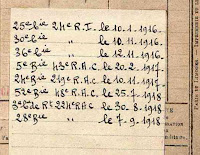 25e Bie 24e R.I. le 10.1.1916.
30e Bie " le 10.11.1916.
36e Bie " le 12.11.1916.
5e Bie 43e R.A.C. le 20.2.1917.
24e Bie 219e R.A.C. le 10.11.1917.
52e Bie 48e R.A.C. le 25.7.1918
Rt 22e R.A.C le 30.8.1918
28e Bie " le 7.9.1918